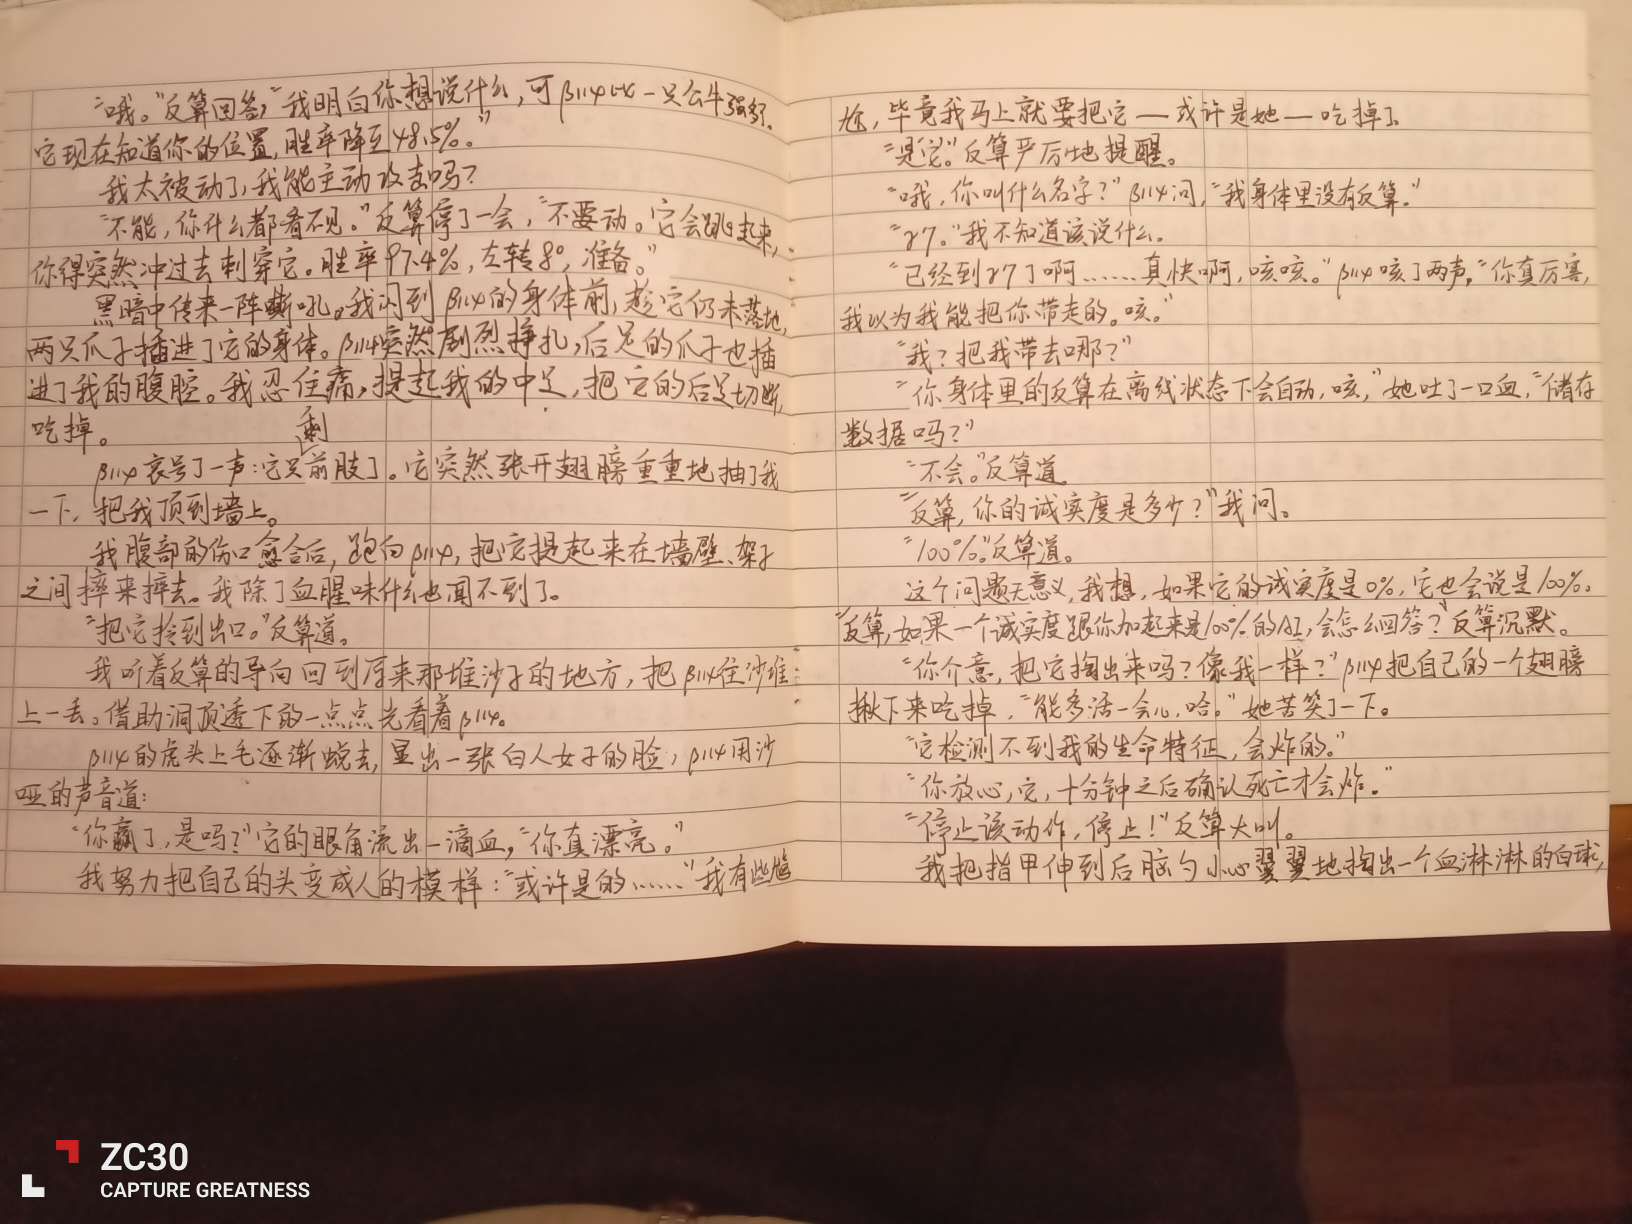 “哦。”反算回答，“我明白你想说什么，可β114比一只公牛强多了，
它现在知道你的位置，胜率降至48.5%。”
我太被动了，我能主动攻击吗？
“不能，你什么都看不见。”反算停了一会，“不要动。它会跳起来，
你得突然冲过去刺穿它。胜率97.4%，左转8°，准备。”
黑暗中传来一阵嘶吼。我闪到β114的身体前，趁它仍未落地，
两只爪子插进了它的身体。β114突然剧烈挣扎，后足的爪子也插
进了我的腹腔。我忍住痛，提起我的中足，把它的后足切断，
吃掉。
β114哀号了一声：它只剩前肢了。它突然张开翅膀重重地抽了我
一下，把我顶到墙上。
我腹部的伤口愈合后，跑向β114，把它提起来在墙壁、架子
之间摔来摔去。我除了血腥味什么也闻不到了。
“把它拎到出口。”反算道。
我听着反算的导向回到原来那堆沙子的地方，把β114往沙堆
上一丢。借助洞顶透下的一点点光看着β114。
β114的虎头上毛逐渐蜕去，显出一张白人女子的脸，β114用沙
哑的声音道：
“你赢了，是吗？”它的眼角流出一滴血，“你真漂亮。”
我努力把自己的头变成人的模样：“或许是的……”我有些尴
尬，毕竟我马上就要把它—或许是她—吃掉了。
“是‘它’。”反算严厉地提醒。
“哦，你叫什么名字？”β114问，“我身体里没有反算。”
“γ7。”我不知道该说什么。
“已经到γ7了啊……真快啊，咳咳。”β114咳了两声，“你真厉害，
我以为我能把你带走的。咳。”
“我？把我带去哪？”
“你身体里的反算在离线状态下会自动，咳，”她吐了一口血，“储存
数据吗？”
“不会。”反算道。
“反算，你的诚实度是多少？”我问。
“100%。”反算道。
这个问题无意义，我想，如果它的诚实度是0%，它也会说是100%。
“反算，如果一个诚实度跟你加起来是100%的AI，会怎么回答？”反算沉默。
“你介意，把它掏出来吗？像我一样？”β114把自己的一个翅膀
揪下来吃掉，“能多活一会儿，哈。”她苦笑了一下。
“它检测不到我的生命特征，会炸的。”
“你放心，它，十分钟之后确认死亡才会炸。”
“停止该动作，停止！”反算大叫。
我把指甲伸到后脑勺小心翼翼地掏出一个血淋淋的白球，
ZC30
CAPTURE GREATNESS